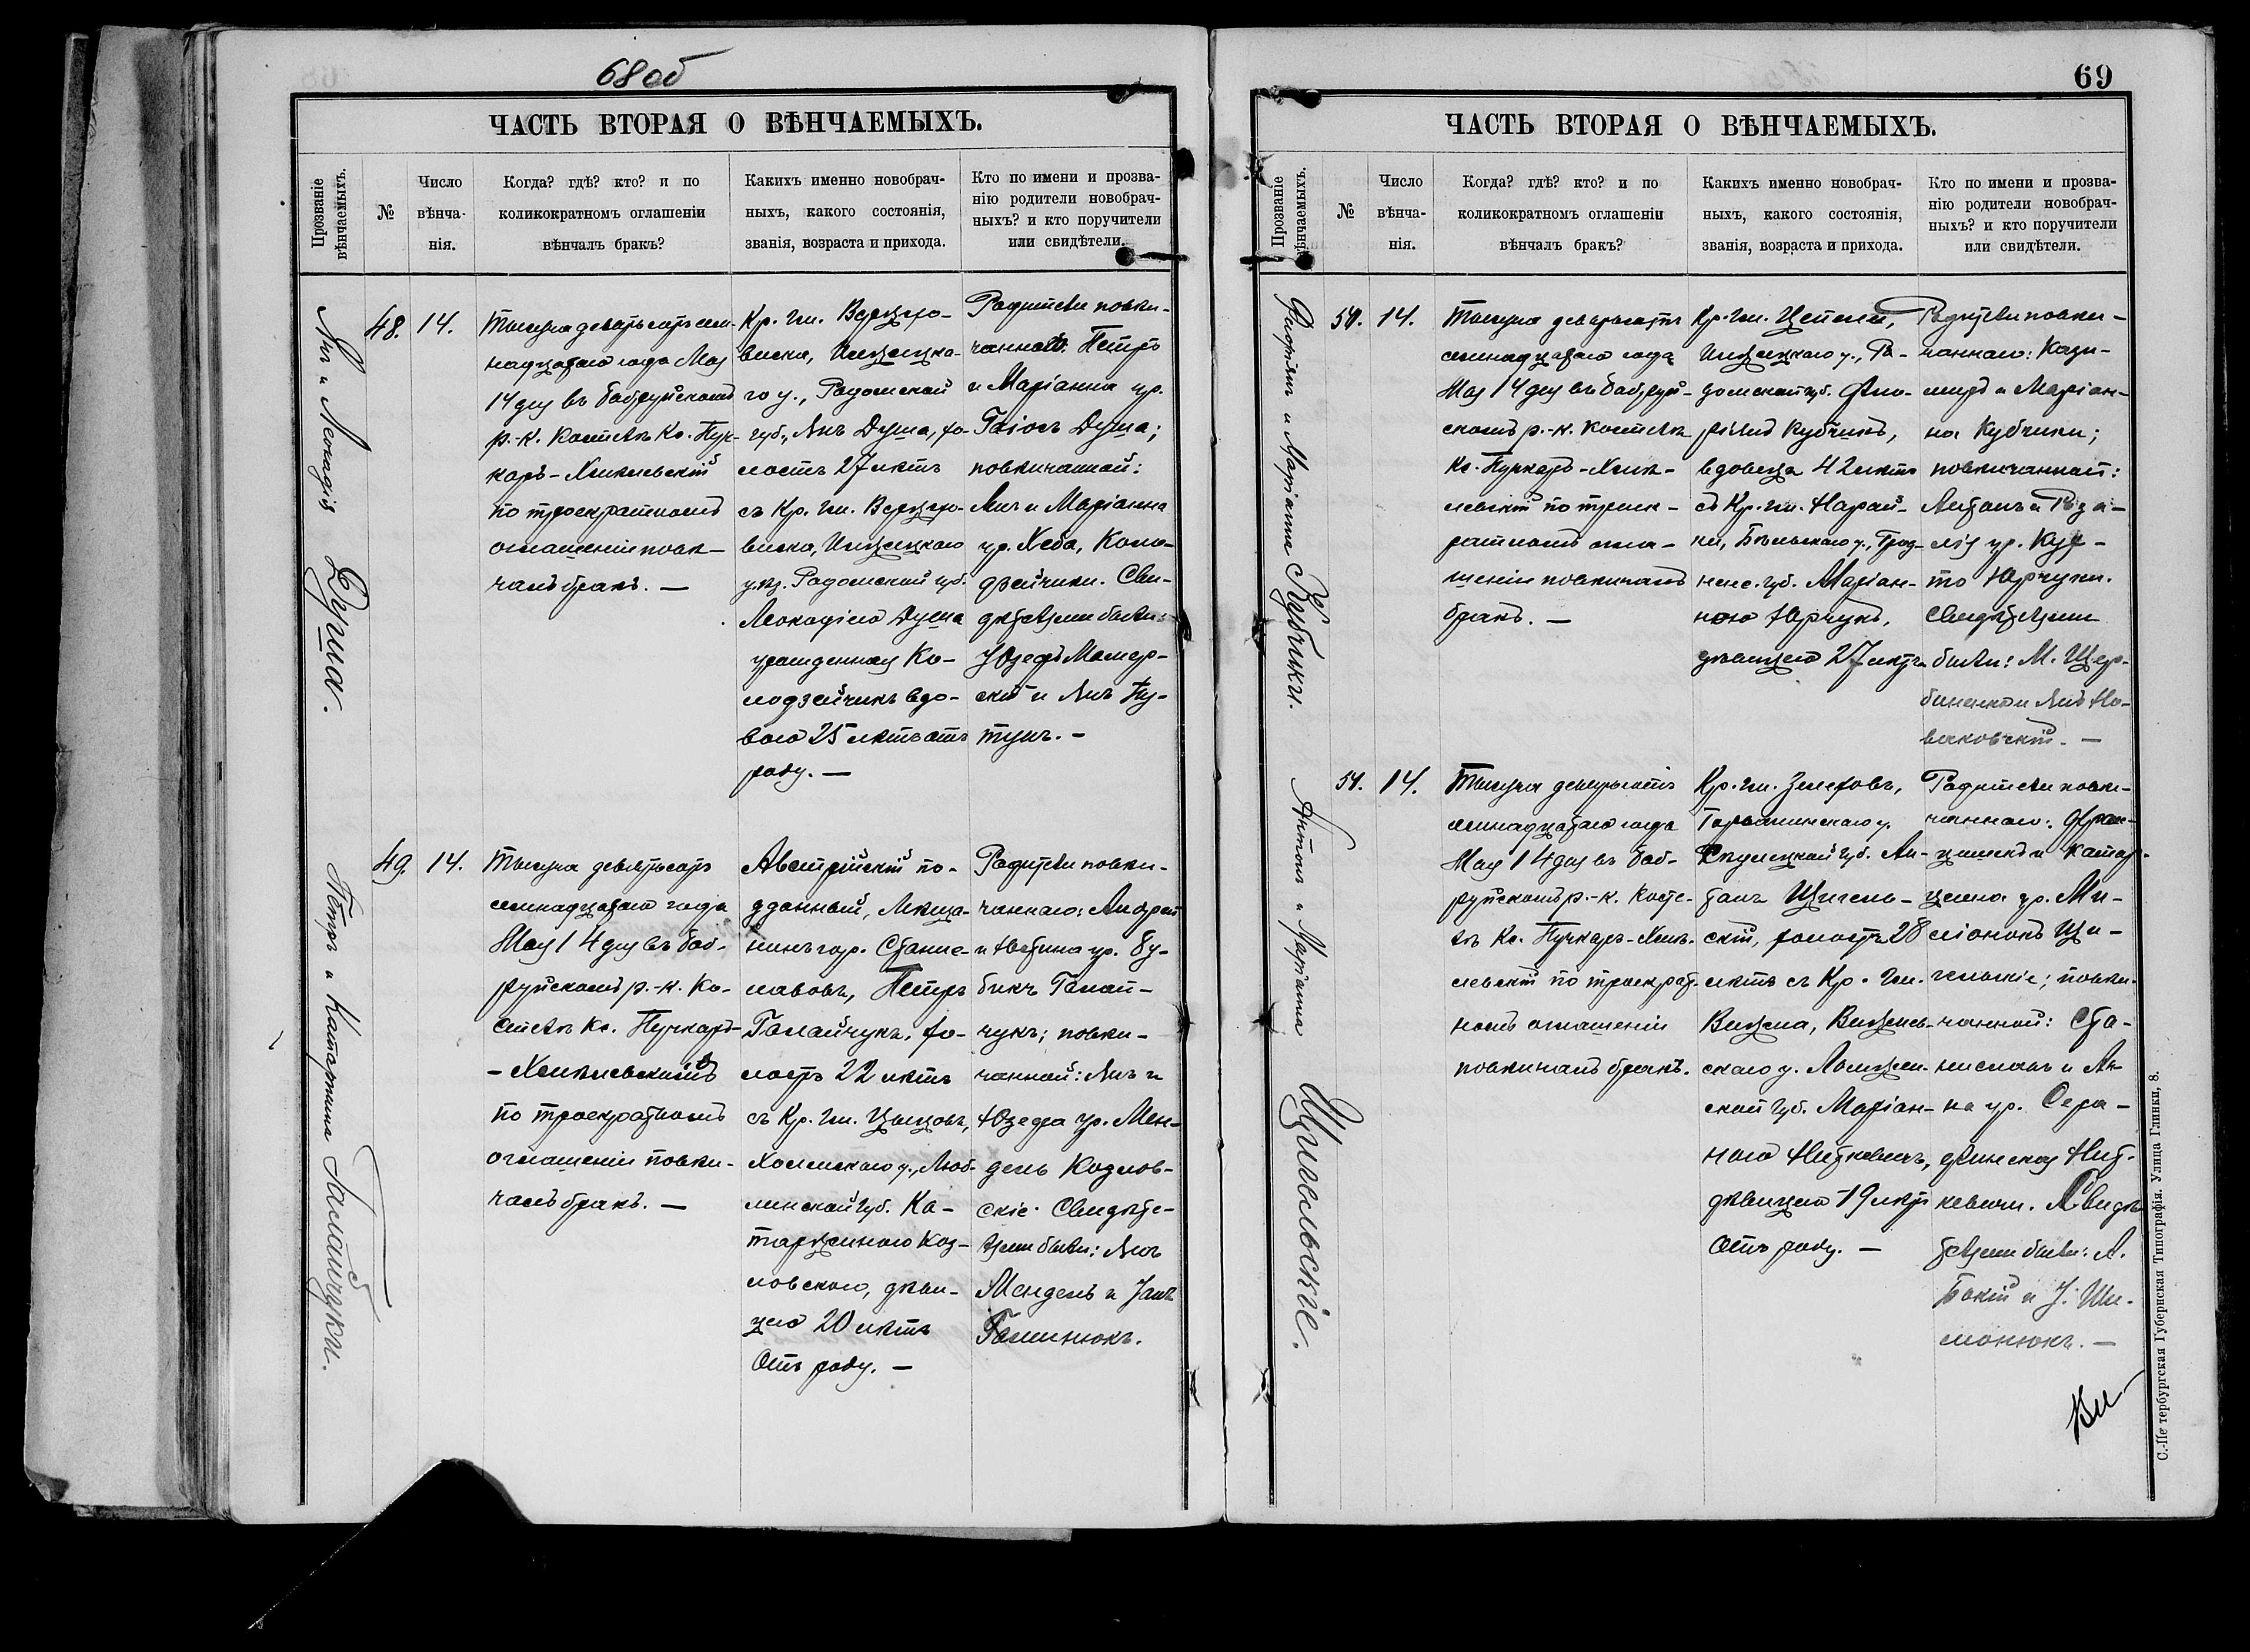 68 об
ЧАСТЬ ВТОРАЯ О ВѢНЧАЕМЫХЪ.
Прозваніе
вѣнчаемыхъ.
№
Число
вѣнча-
нія.
Когда? гдѣ? кто? и по
коликократномъ оглашеніи
вѣнчалъ бракъ?
Какихъ именно новобрач-
ныхъ, какого состоянія,
званія, возраста и прихода.
Кто по имени и прозва-
нію родители новобрач-
ныхъ? и кто поручители
или свидѣтели.
Янъ и Леокадія Душа.
48.
14.
Тысяча девятьсотъ сем-
надцатаго года Мая
14 дня въ Бобруйскомъ
р.-к. Костелѣ Кс. Пуч-
каръ-Хмѣлевскій
по троекратномъ
оглашеніи повѣн-
чалъ бракъ. —
Кр. гм.
го у., Радомской
губ., Янъ Душа, хо-
лостъ 27 лѣтъ
съ Кр. гм.
у. Радомской губ.
Леокадіею Душа
урожденная Ко-
лодзейчикъ вдо-
вою 25 лѣтъ отъ
роду. —
Родители повѣн-
чаннаго: Петръ
и Маріанна ур.
Душа;
повѣнчанной:
Янъ и Маріанна
ур. Хеба, Коло-
дзейчики. Сви-
дѣтелями были:
Юзефъ
скій и Янъ
49.
14.
Петръ и Катаржина Галайчуки.
Тысяча девятьсотъ
семнадцатаго года
Мая 14 дня въ Боб-
руйскомъ р.-к. Ко-
стелѣ Кс. Пучкаръ-
-Хмѣлевскимъ
по троекратномъ
оглашеніи повѣн-
чалъ бракъ. —
Австрійскій по-
дданный, мѣща-
нинъ гор. Станис-
лавовъ, Петръ
Галайчукъ, хо-
лостъ 22 лѣтъ
съ Кр. гм. Цыцовъ,
Холмскаго у., Люб-
линской губ. Ка-
таржиною Коз-
ловскою, дѣви-
цею 20 лѣтъ
отъ роду. —
Родители повѣн-
чаннаго: Андрей
и Юстина ур.
Галай-
чукъ; повѣн-
чанной: Янъ и
Юзефа ур. Мен-
дель Козлов-
скіе. Свидѣте-
лями были: Янъ
Мендель и
69
ЧАСТЬ ВТОРАЯ О ВѢНЧАЕМЫХЪ.
Прозваніе
вѣнчаемыхъ.
№
Число
вѣнча-
нія.
Когда? гдѣ? кто? и по
коликократномъ оглашеніи
вѣнчалъ бракъ?
Какихъ именно новобрач-
ныхъ, какого состоянія,
званія, возраста и прихода.
Кто по имени и прозва-
нію родители новобрач-
ныхъ? и кто поручители
или свидѣтели.
Флоріянъ и Маріанна Кубчики.
14.
Тысяча девятьсотъ
семнадцатаго года
Мая 14 дня въ Бобруй-
скомъ р.-к. Костелѣ
Кс. Пучкаръ-Хмѣ-
левскій по троек-
ратномъ огла-
шеніи повѣнчалъ
бракъ. —
Кр. гм. Цепеля,
у., Ра-
домской губ. Фло-
ріянъ Кубчикъ,
вдовецъ 42 лѣтъ
съ Кр. гм. Нарай-
ки, Бѣльскаго у., Грод-
ненс. губ. Маріан-
ною Юрчукъ,
дѣвицею 27 лѣтъ
Родители повѣн-
чаннаго: Кази-
миръ и Маріан-
на Кубчики;
повѣнчанной:
Антонъ и Роза-
лія ур.
Юрчуки.
Свидѣтелями
были: М. Щер-
и Янъ Но-
ваковскій. —
Антонъ и Маріанна Щигельскіе.
14.
Тысяча девятьсотъ
семнадцатаго года
Мая 14 дня въ Боб-
руйскомъ р.-к. Косте-
лѣ Кс. Пучкаръ-Хмѣ-
левскій по троекрат-
номъ оглашеніи
повѣнчалъ бракъ.
Кр. гм. Зелеховъ,
Гарволинскаго у.
губ. Ан-
тонъ Щигель-
скій, холостъ 28
лѣтъ съ Кр. гм.
Визна,
скаго у. Ломжин-
ской губ. Маріан-
ною Ниткевичъ,
дѣвицею 19 лѣтъ
отъ роду. —
Родители повѣн-
чаннаго: Фран-
цишекъ и Катар-
жина ур.
Щи-
гельскіе; повѣн-
чанной: Ста-
ниславъ и Ан-
на ур. Сера-
финская Нит-
кевичи. Свидѣ-
телями были: А.
и І. Ши-
монюкъ. —
С.-Петербургская Губернская Типографія. Улица Глинки, 8.